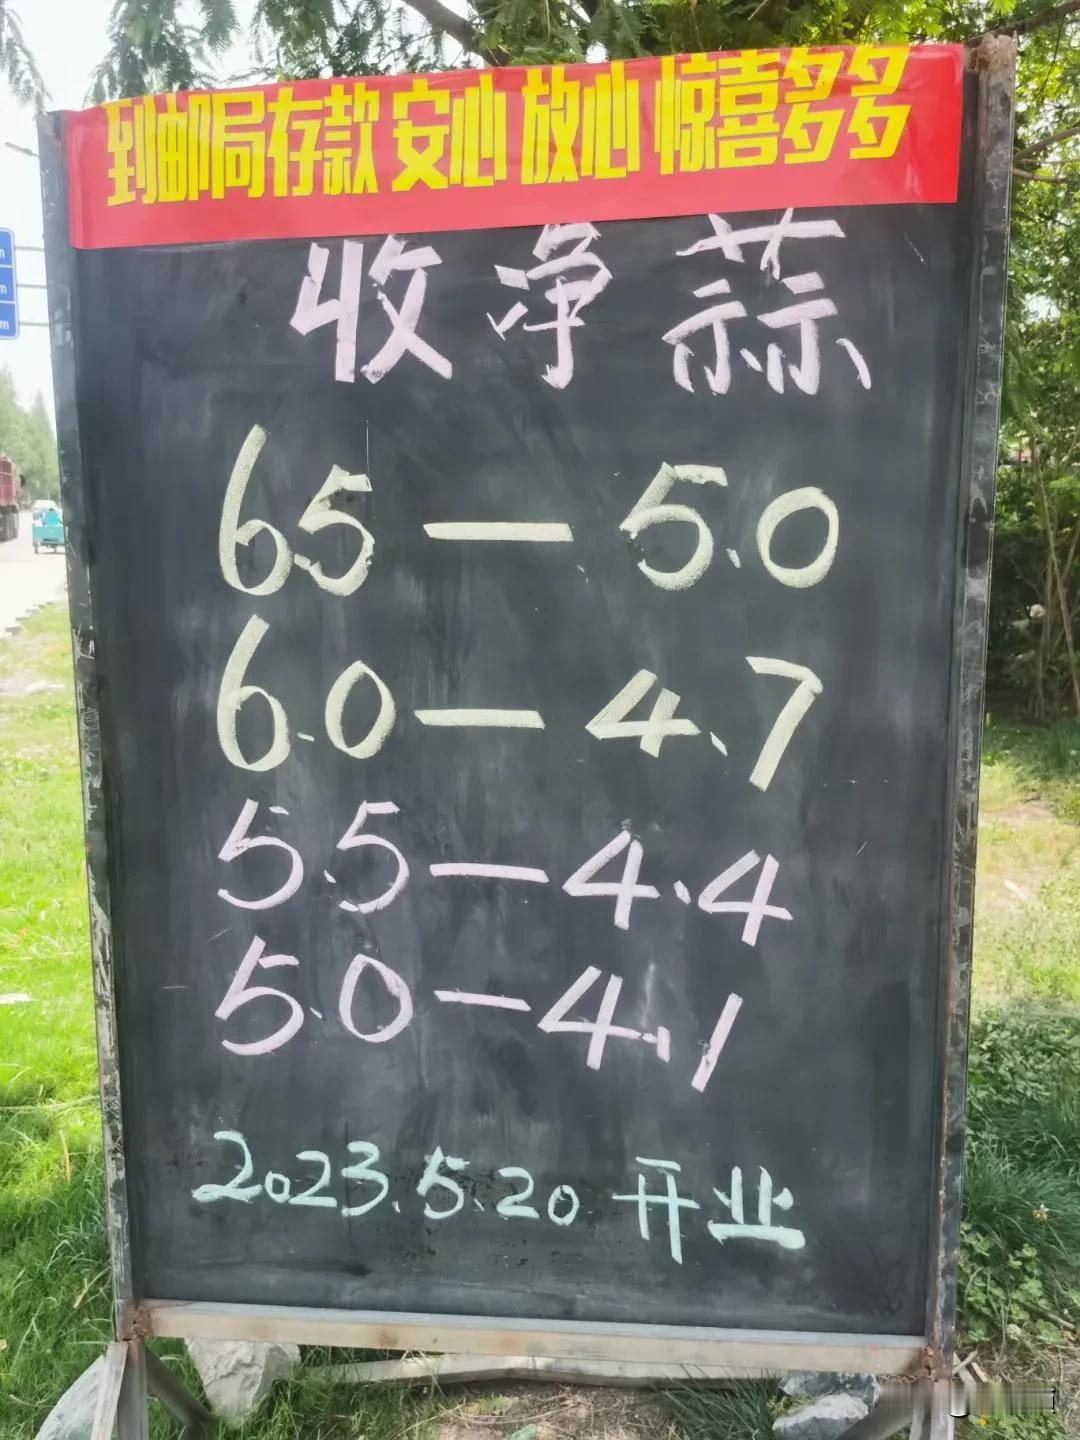 到邮局存款 安心 放心 惊喜多多
收净蒜
6.5—5.0
6.0—4.7
5.5—4.4
5.0—4.1
2023.5.20 开业